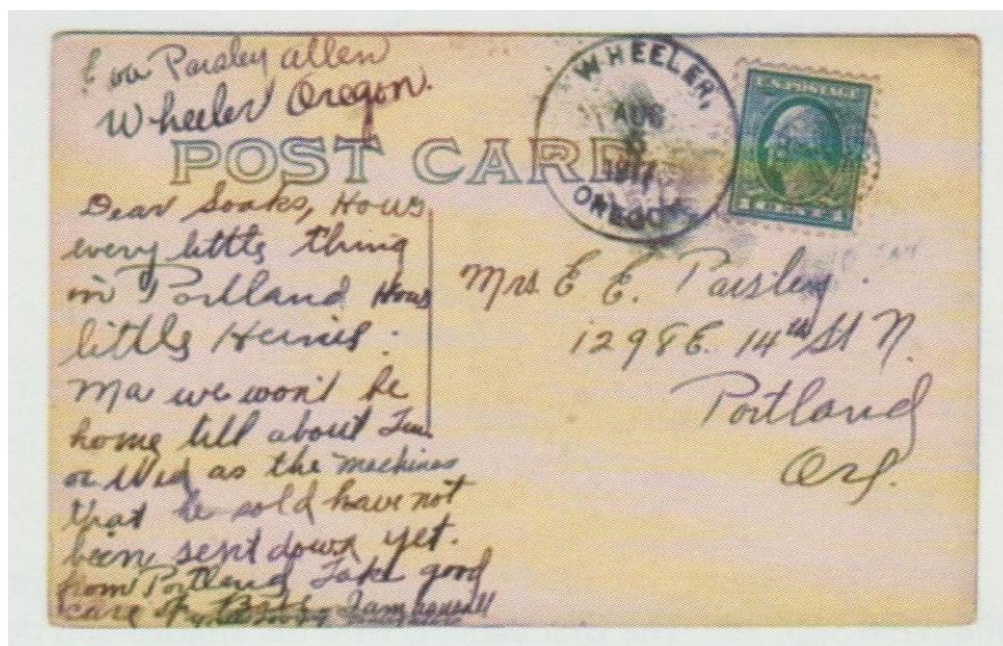 Eva Paisley Allen
Wheeler Oregon.
POST CARD
WHEELER,
AUG
1917
OREGON
U.S. POSTAGE
1 CENT 1
Dear Soaks, Hows
every little thing
in Portland Hows
little Heinie.
Ma we won't be
home till about Tue.
or Wed as the machines
that he sold have not
been sent down yet.
from Portland Take good
care of
Mrs. E. E. Paisley.
1298 E. 14th St N.
Portland
Ore.